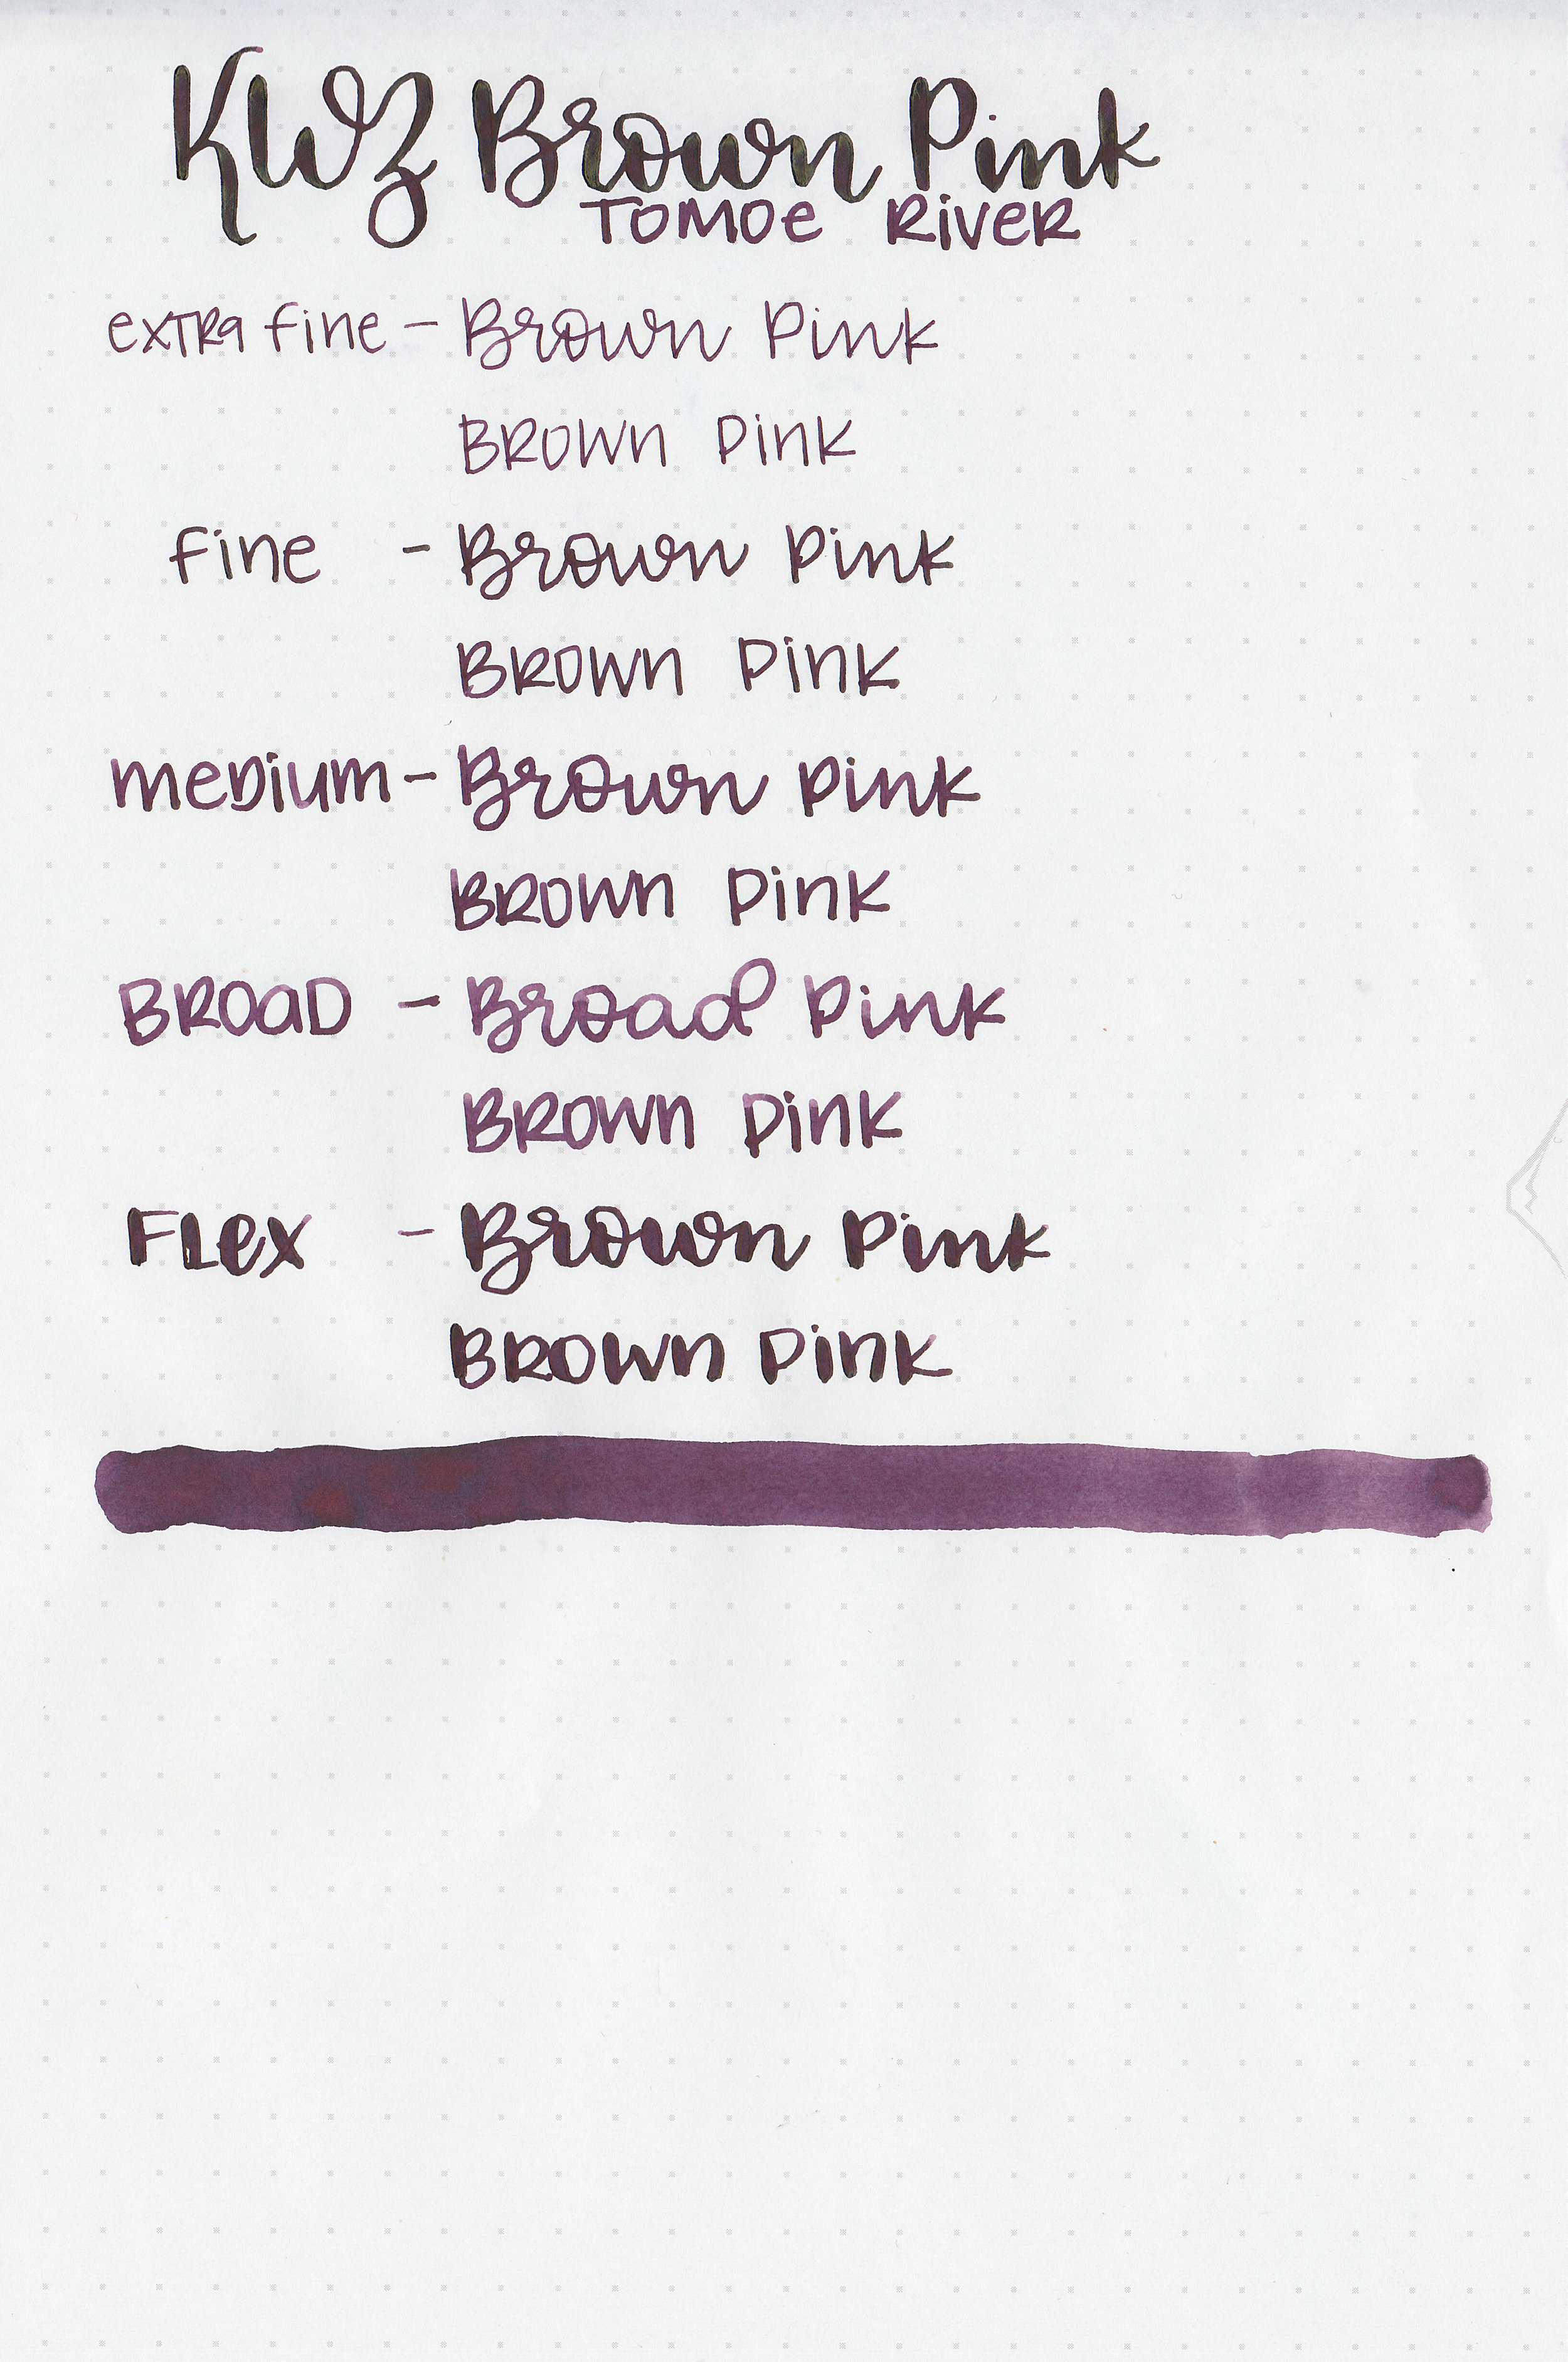 KWZ Brown Pink
Tomoe River
extra fine - Brown Pink
Brown Pink
fine - Brown Pink
Brown Pink
medium - Brown Pink
Brown Pink
Broad - Broad Pink
Brown Pink
Flex - Brown Pink
Brown Pink